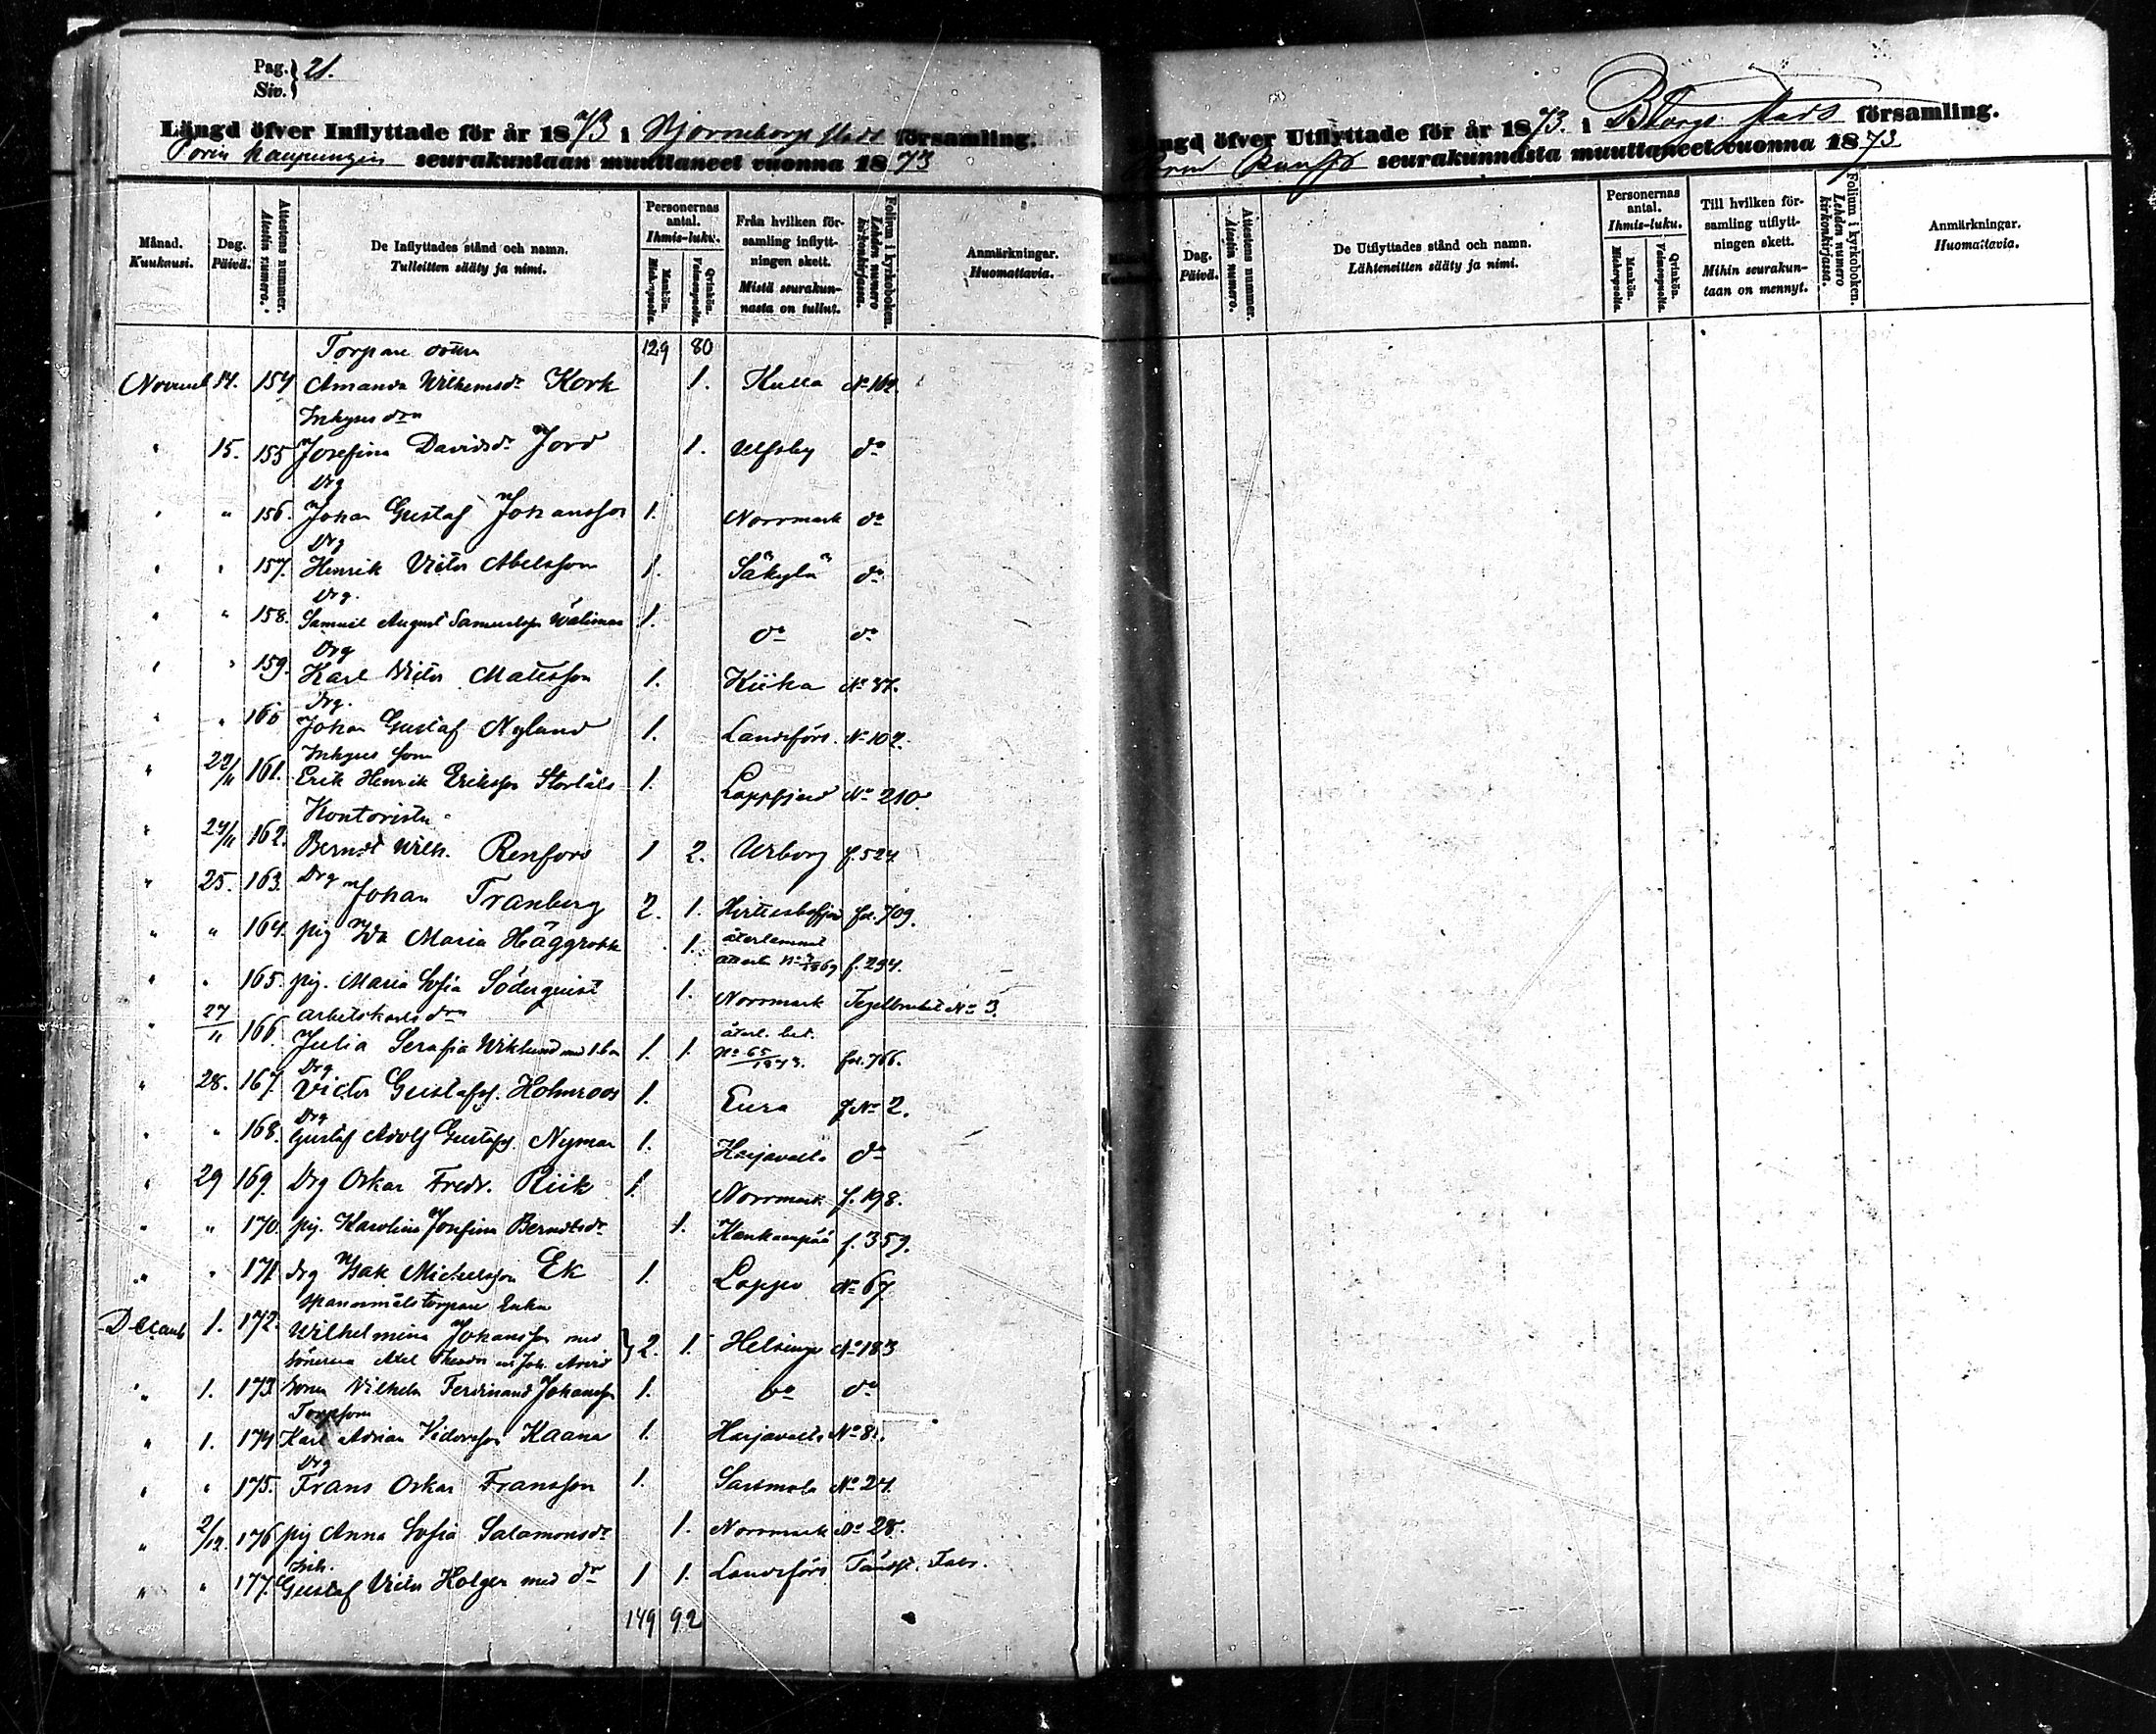 Pag. 21.
Siv.
Längd öfver Inflyttade för år 1873 i Björneborgs stads församling.
Porin kaupungin seurakuntaan muuttaneet vuonna 1873
Månad. Kuukausi.
Dag. Päivä.
Attestens nummer. Atestin numero.
De Inflyttades stånd och namn. Tulleitten sääty ja nimi.
Personernas antal. Ihmis-luku.
Mankön. Miehenpuolta.
Qvinkön. Vaimonpuolta.
Från hvilken församling inflyttningen skett. Mistä seurakunnasta on tullut.
Folium i kyrkoboken. Lehden numero kirkonkirjassa.
Anmärkningar. Huomattavia.
Torpare 129 80
Novemb 14. 154 Amanda Wilhemsdr Kork 1. Kulla No 162.
Inhyses dran
" 15. 155 Josefina Davidsdr Jord 1. Ulfsby do
Drg
" " 156. Johan Gustaf Johansson 1. Norrmark do
Drg
" " 157. Henrik Victor Abelsson 1. Säkylä do
Drg.
" " 158. Samuel August Samuelsson 1. do do
Drg
" " 159. Karl Victor Matesson 1. Kiika No 87.
Drg.
" " 160 Johan Gustaf Nylund 1. Landsförs. No 102.
Inhyses son
" 22/11 161. Erik Henrik Eriksson 1. Lappfjerd No 210.
Kontoristen
" 24/11 162. Bernd Wilh. Renfors 1 2. f. 524
" 25. 163. Drg Johan Tranberg 2. 1. fol. 709.
" " 164. pig Ida Maria Häggroth 1. återlemnat
f. 294.
" " 165. pig. Maria Sofia Söderqvist 1. Norrmark Tegelbruket No 3.
arbetskarls dran
" 27/11 166. Julia Serafia Wiklund med 1. b. 1. 1. återl. bet. No 65/1873. fol. 766.
Drg
" 28. 167. Victor Gustafss. Holmroos 1. Eura No 2.
Drg
" " 168. Gustaf Adolf Gustafss. Nyman 1. Harjavalta do
" 29 169. Drg Oskar Fredr. Riik 1. Norrmark f. 198.
" " 170. pig. Karolina Josefina Berndtsdr 1. Kankaanpää f. 359.
" " 171 drg Isak Michelsson Ek 1. Lappo No 67
Spanmålstorpare Enkan
Decemb 1. 172. Wilhelmina Johansson med
sönerna Axel Theodor och Joh. Arvid 2. 1. Helsinge No 183
" 1. 173. Sonen Vilhelm Ferdinand Johansson 1. do do
Torpson
" 1. 174 Karl Adrian Vidorsson Kaana 1. Harjavalta No 81.
Drg
" " 175. Frans Oskar Fransson 1. Sastmola No 24.
" 2/12. 176 pig Anna Sofia Salamonsdr 1. Norrmark No 28.
Inh.
" " 177. Gustaf Victor Holger med dr 1 1. Landsförs Tändst. Fabr.
149 92
Längd öfver Utflyttade för år 1873. i Bborgs stads församling.
Porin kaup seurakunnasta muuttaneet vuonna 1873
Dag. Päivä.
Attestens nummer. Atestin numero.
De Utflyttades stånd och namn. Lähteneitten sääty ja nimi.
Personernas antal. Ihmis-luku.
Mankön. Miehenpuolta.
Qvinkön. Vaimonpuolta.
Till hvilken församling utflyttningen skett. Mihin seurakuntaan on mennyt.
Folium i kyrkoboken. Lehden numero kirkonkirjassa.
Anmärkningar. Huomattavia.